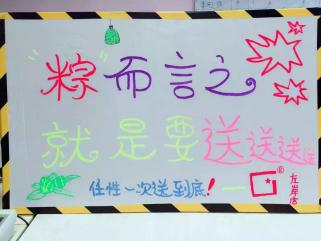 "粽"而言之
就是要送送送送
任性一次送到底!
左岸店